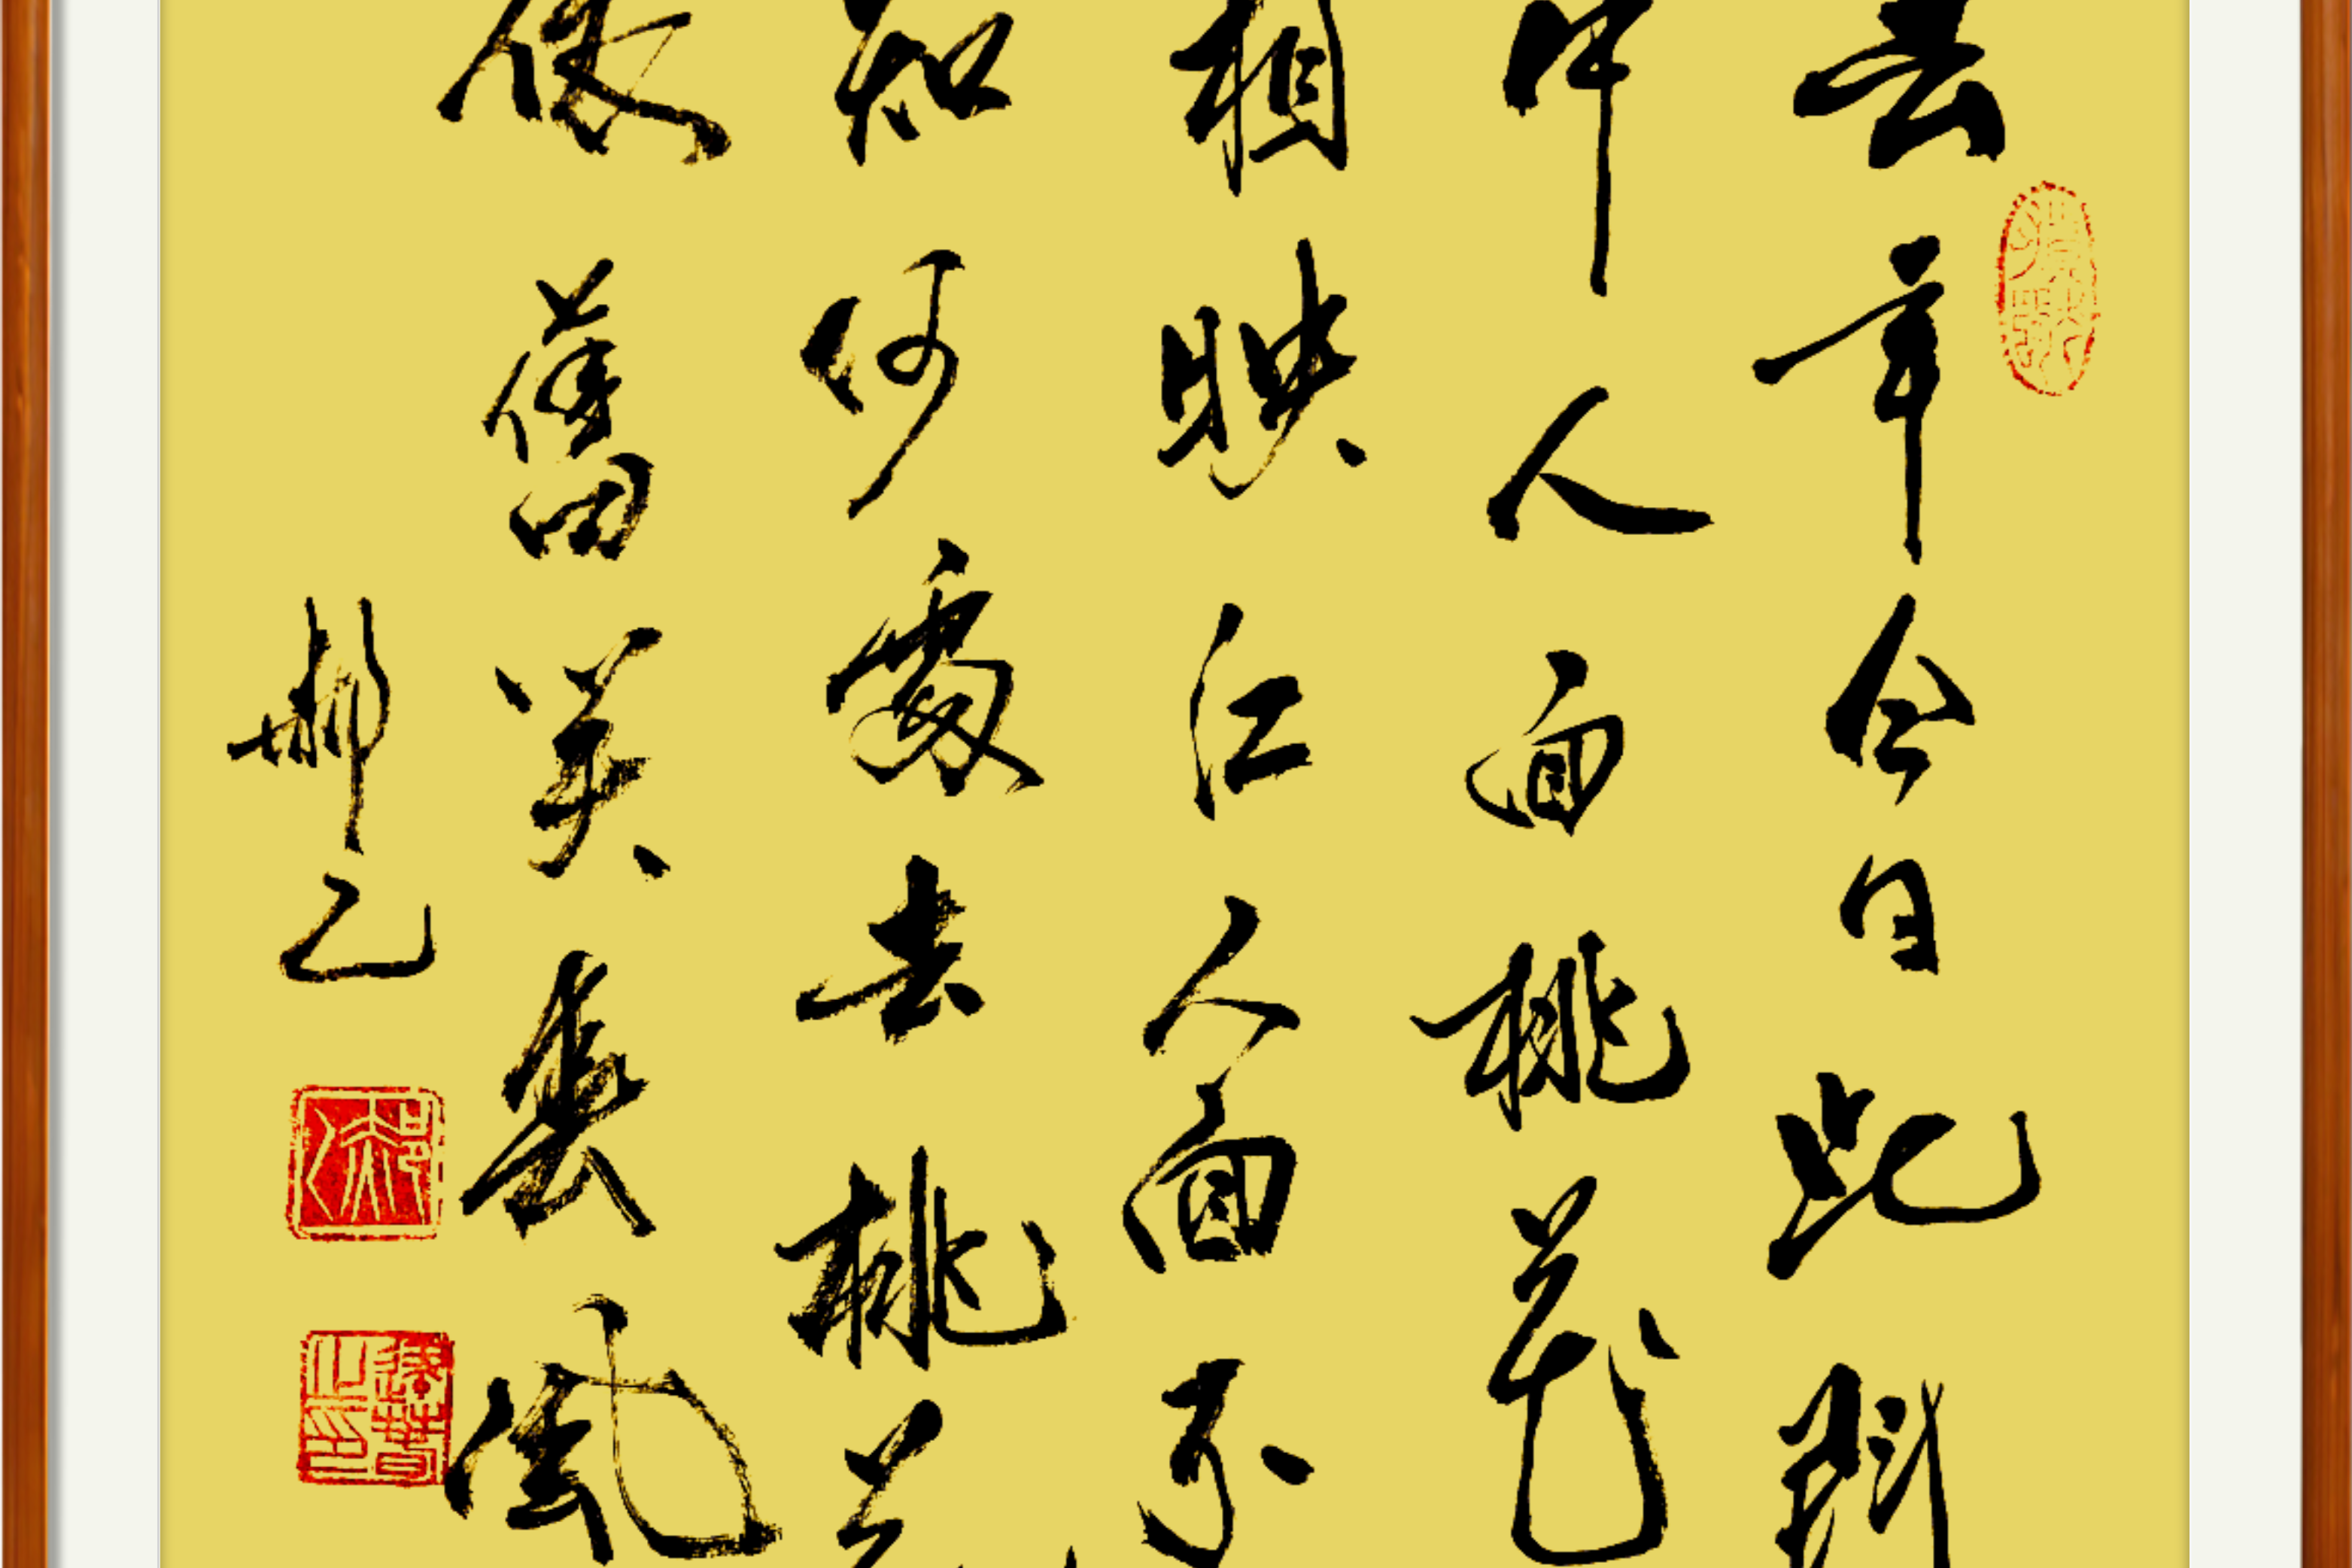 去年今日此門
中人面桃花
相映紅人面不
知何處去桃花
依舊笑春風